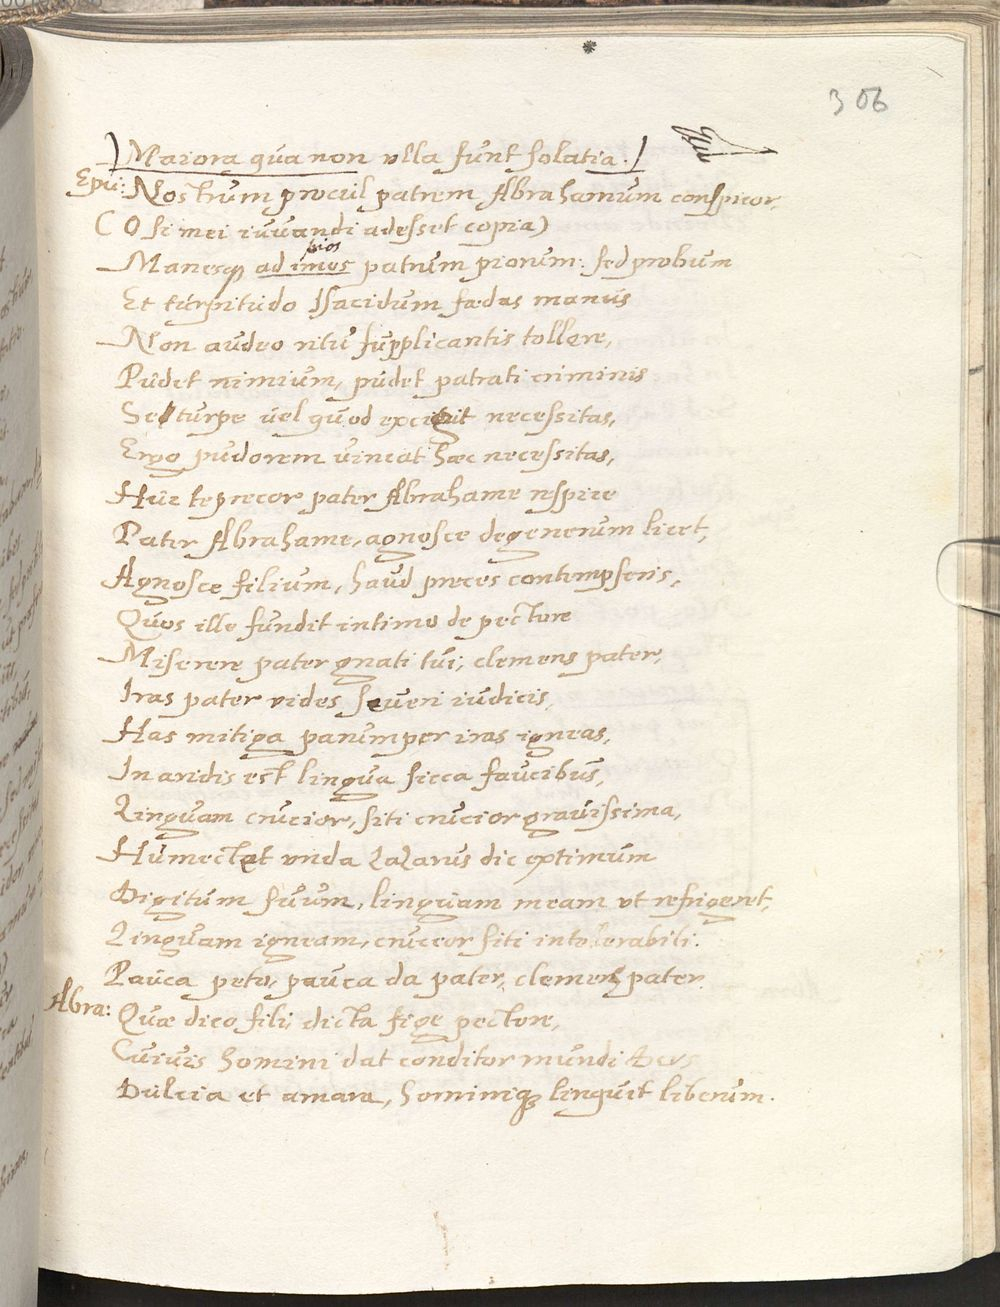 306
Maiora qua non vlla sunt solatia.
Epu: Nostrum procul patrem Abrahamum conspicor,
(O si mei iuuandi adesset copia)
pios
Manesq3 ad imos patrum piorum: sed probrum
Et turpitudo Isacidum fœdas manus
Non audeo ritu supplicantis tollere,
Pudet nimium, pudet patrati criminis
Sed turpe uel quod exigit necessitas,
Ergo pudorem uincat hæc necessitas,
Huc te precor pater Abrahame respice
Pater Abrahame, agnosce degenerum licet,
Agnosce filium, haud preces contempseris,
Quas ille fundit intimo de pectore
Miserere pater gnati tui, clemens pater,
Iras pater vides seueri iudicis,
Has mitiga parumper iras igneas,
In aridis est lingua sicca faucibus,
Linguam crucior, siti crucior grauissima,
Humectet vnda Lazarus dic extimum
Digitum suum, linguam meam vt refrigeret,
Linguam igneam, crucior siti intolerabili.
Pauca peto, pauca da pater, clemens pater.
Abra: Quæ dico fili, dicta fige pectore,
Cuiuis homini dat conditor mundi Deus
Dulcia et amara, hominiq3 linquit liberum.